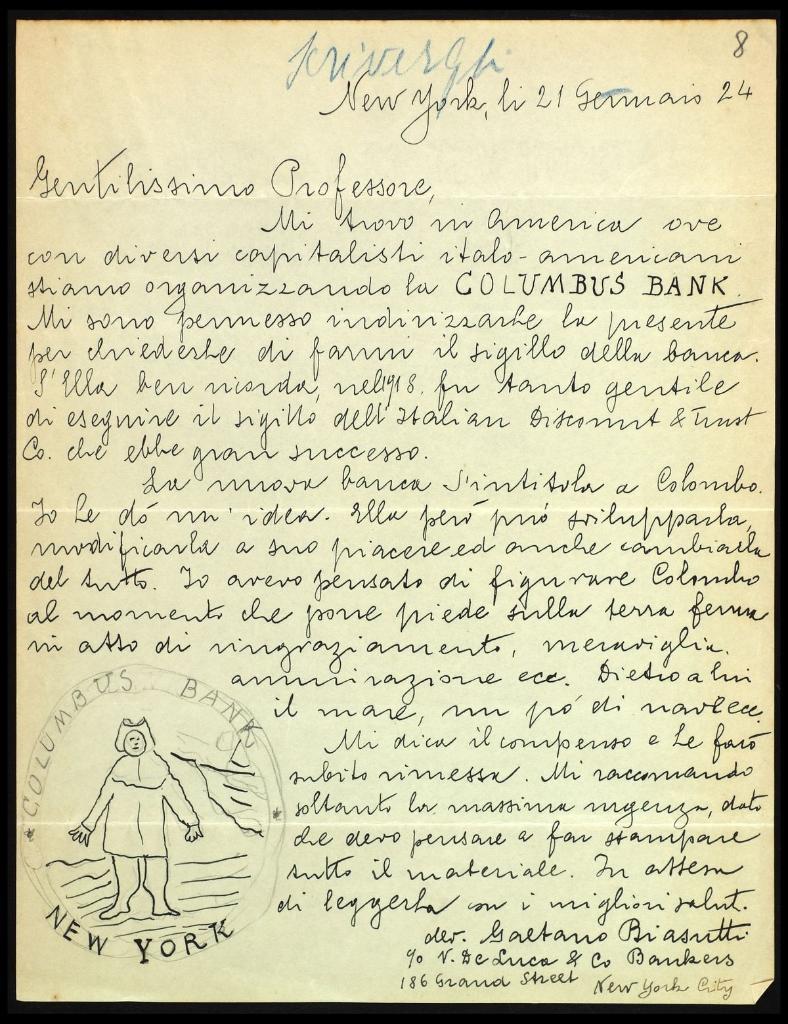 8
scrivergli
New York, li 21 Gennaio 24
Gentilissimo Professore,
Mi trovo in America ove
con diversi capitalisti italo-americani
stiamo organizzando la COLUMBUS BANK.
Mi sono permesso indirizzarLe la presente
per chiederLe di farmi il sigillo della banca.
S'Ella ben ricorda, nel 1918. fu tanto gentile
di eseguire il sigillo dell'Italian Discount & Trust
Co. che ebbe gran successo.
La nuova banca s'intitola a Colombo.
Io Le dó un'idea. Ella però può svilupparla,
modificarla a suo piacere ed anche cambiarla
del tutto. Io avevo pensato di figurare Colombo
al momento che pone piede sulla terra ferma
in atto di ringraziamento, meraviglia,
ammirazione ecc. Dietro a lui
il mare, un pó di navi ecc.
Mi dica il compenso e Le farò
subito rimessa. Mi raccomando
soltanto la massima urgenza, dato
che devo pensare a far stampare
tutto il materiale. In attesa
di leggerLa con i migliori saluti.
dev. Gaetano Biasutti
c/o V. De Luca & Co Bankers
186 Grand Street New York City
* COLUMBUS BANK *
NEW YORK